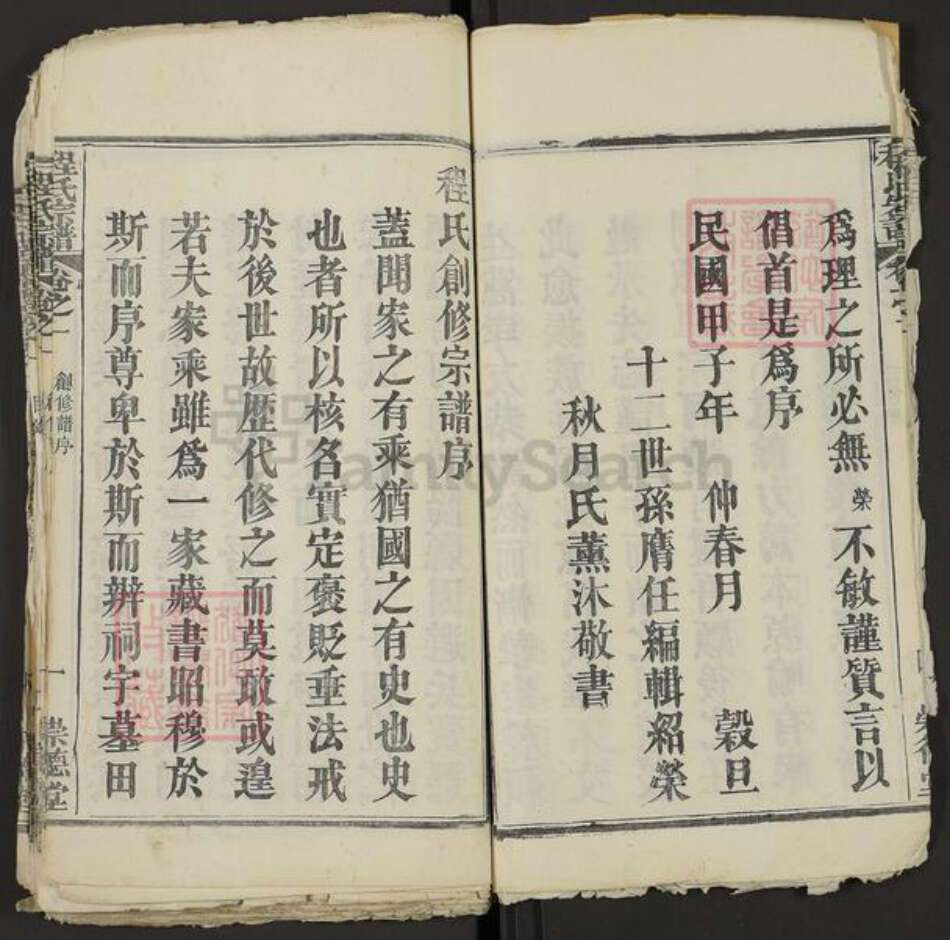 爲理之所必無榮不敏謹質言以
倡首是爲序
民國甲子年 仲春月 穀旦
十二世孫膺任編輯紹榮
秋月氏薰沐敬書
程氏創修宗譜序
蓋聞家之有乘猶國之有史也史
也者所以核名實定褒貶垂法戒
於後世故歷代修之而莫敢或遑
若夫家乘雖爲一家藏書昭穆於
斯而序尊卑於斯而辨祠宇墓田
程氏宗譜 卷之一
創修譜序
一
崇德堂
FamilySearch